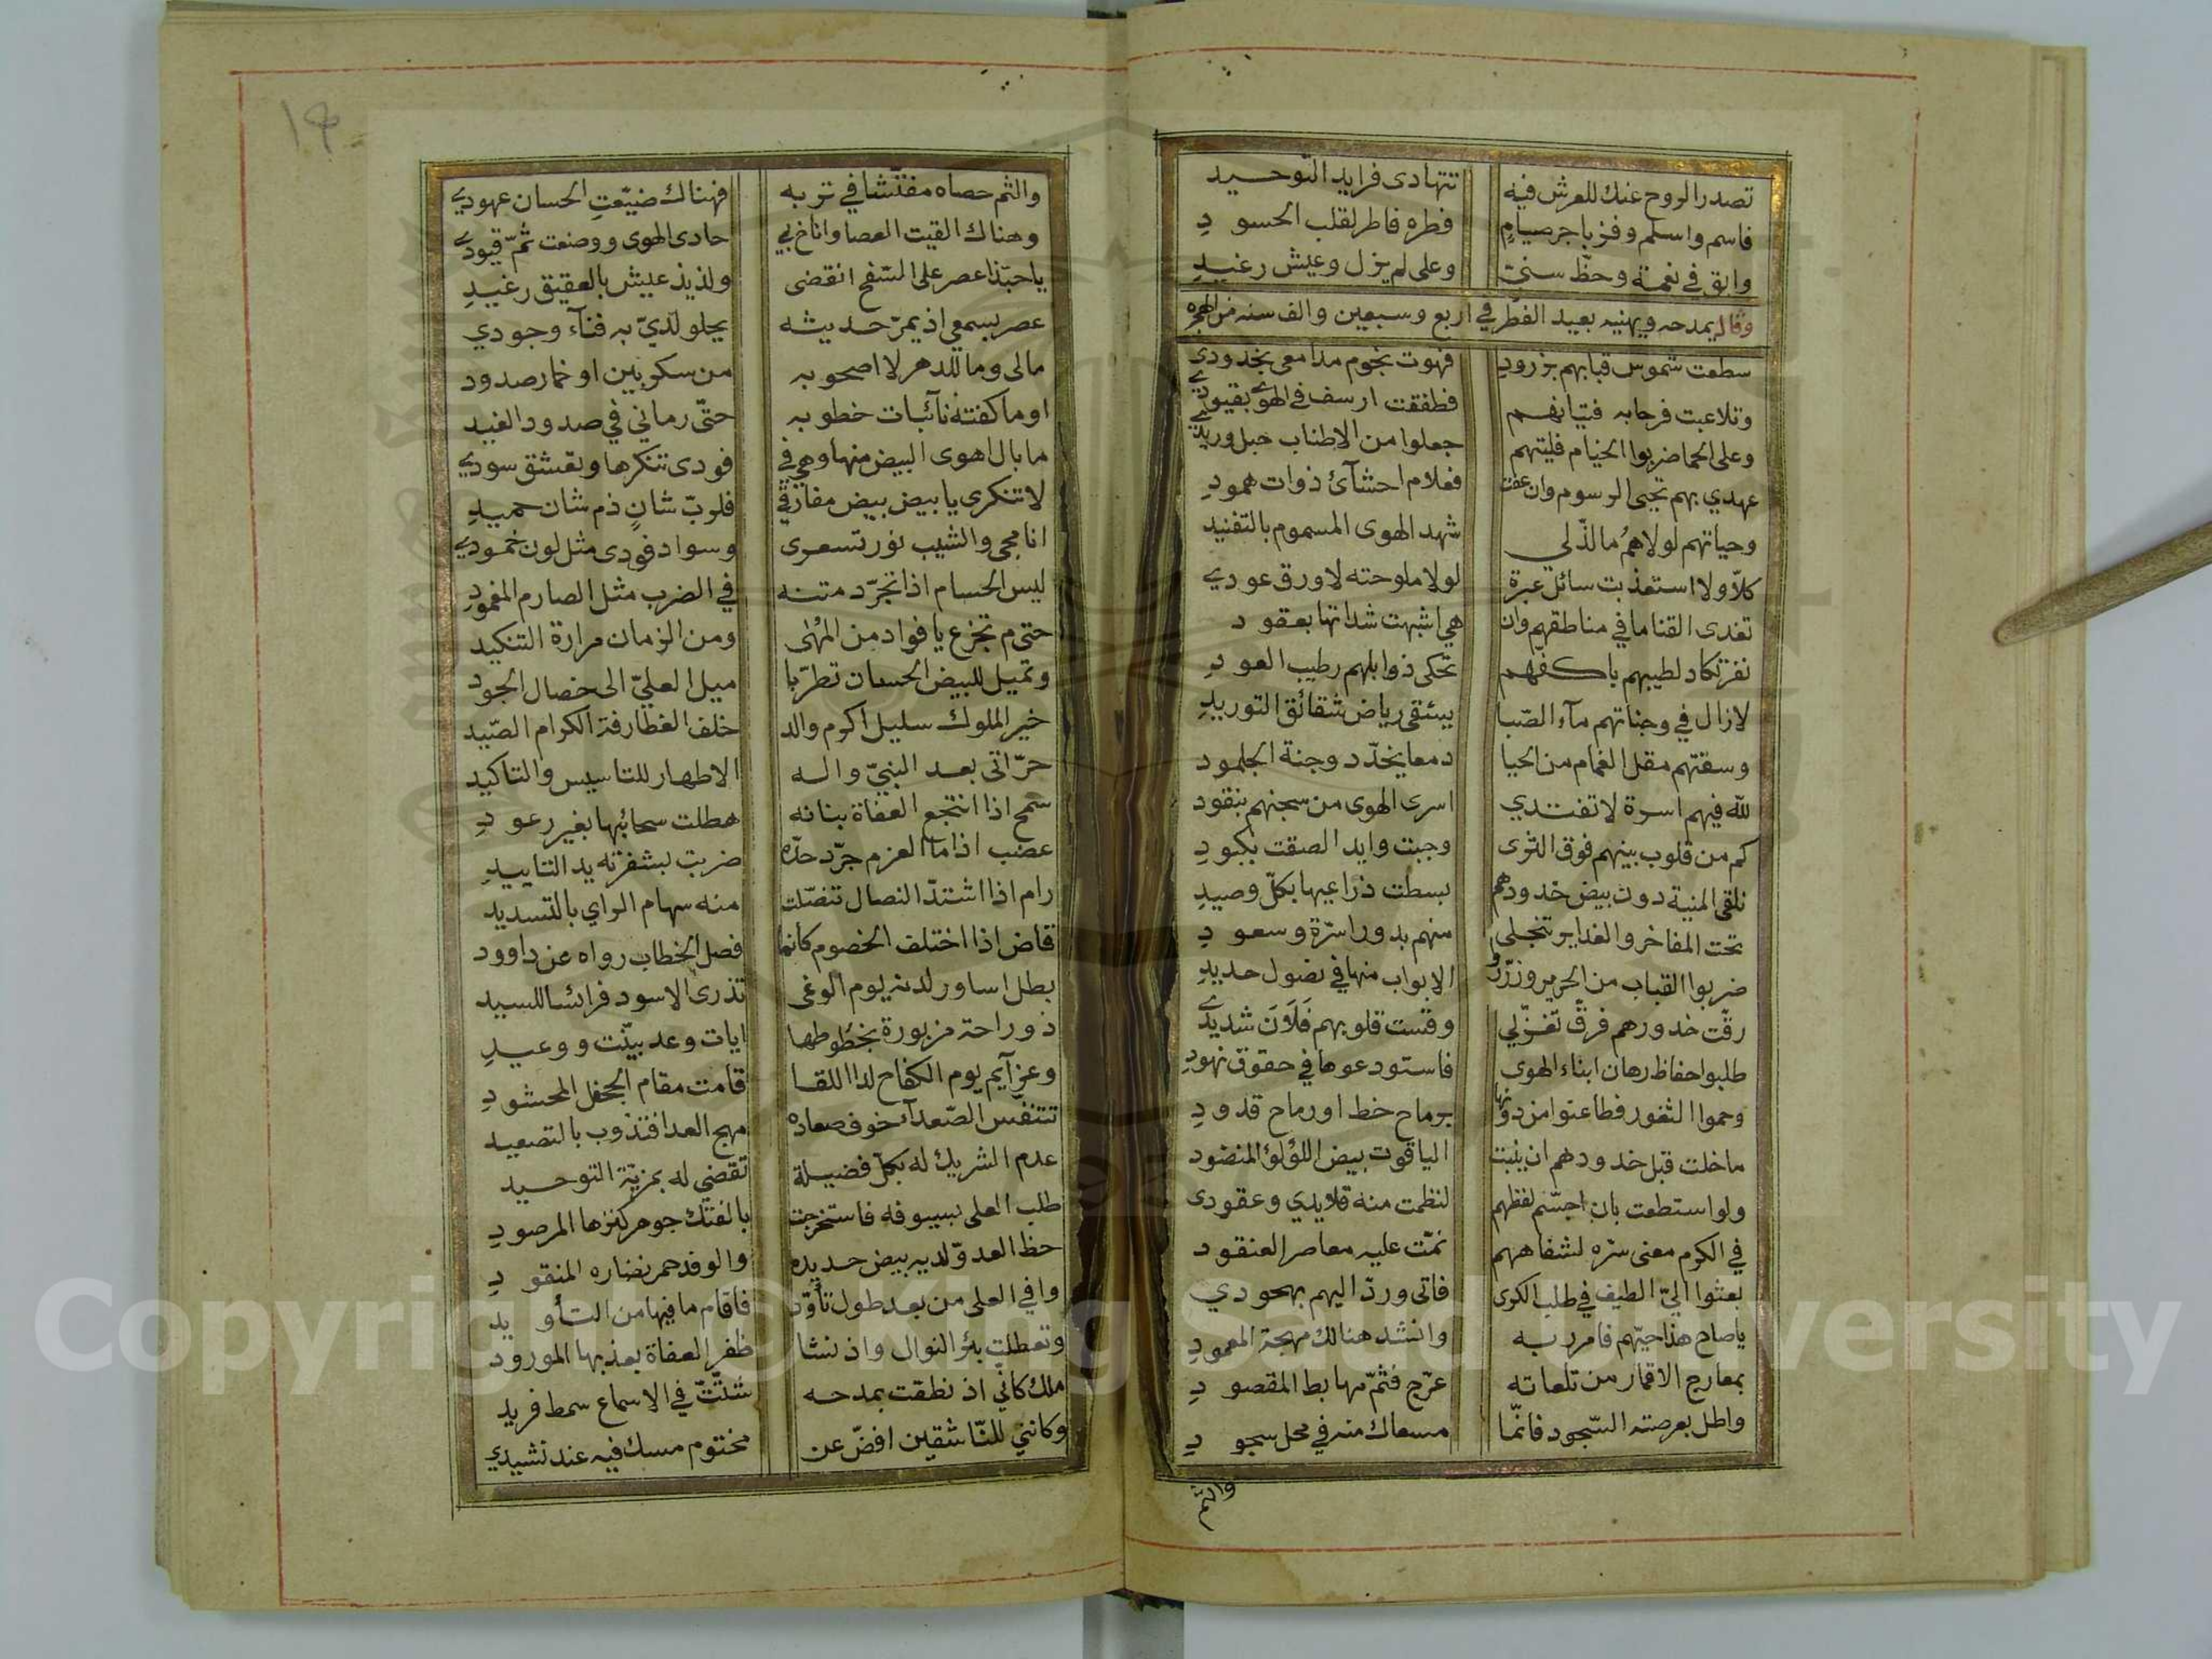 تصدر الروح عنك للعرش فيه تتهادى فرايد التوحيد
فاسم واسلم وفز باجر صيام فطره فاطر لقلب الحسود
وابق في نعمة وحظ سنيّ وعلى لم يزل وعيش رغيد
وقال يمدحه ويهنيه بعيد الفطر في اربع وسبعين والف سنه من الهجره
سطعت شموس قبابهم بزرود فهوت نجوم مدامعي بخدودي
وتلاعبت فرحا به فتيانهم فطفقت ارسف في الهوى بقيودي
وعلى الحما ضربوا الخيام فليتهم جعلوا من الاطناب حبل وريدي
عهدي بهم تحيى الرسوم وان عفت فعلام احشآئ ذوات همود
وحياتهم لولاهمُ ما لذّ لي شهد الهوى المسموم بالتفنيد
كلا ولا استعذبت سائل عبرة لولا ملوحته لاورق عودي
تفدى القنا ما في مناطقهم وان هي اشبهت شداتها بعقود
نفر تكاد لطيبهم باكفهم تحكى ذوابلهم رطيب العود
لازال في وجناتهم مآء الصّبا يسقى رياض شقائق التوريد
وسقتهم مقل الغمام من الحيا دمعا يخدّد وجنة الجلمود
لله فيهم اسرة لا تفتدي اسرى الهوى من سجنهم بنقود
كم من قلوب بينهم فوق الثرى وجبت وايد الصقت بكبود
نلقى المنية دون بيض خدودهم بسطت ذراعيها بكلّ وصيد
تحت المفاخر والغداير تنجلى منهم بدور اسرّة وسعود
ضربوا القباب من الحرير وزرّروا الابواب منها في نضول حديد
رقّت خدورهم فرقّ تغزّلي وقست قلوبهم فَلَانَ شديدي
طلبوا حفاظ رهان ابناء الهوى فاستودعوها في حقوق نهود
وحموا الثغور فطاعنوا من دونها برماح خط او رماح قدود
ما خلت قبل خدودهم ان ينبت الياقوت بيض اللؤلؤ المنضود
ولو استطعت بان اجسّم لفظهم لنظمت منه قلايدي وعقودى
في الكرم معنى سرّه لشفاههم نمّت عليه معاصر العنقود
بعثوا اليّ الطيف في طلب الكرى فاتى وردّ اليهم بهجودي
يا صاح هذا حيّهم فامرر به وانشد هنالك مهجة المعمود
بمعارج الاقمار من تلعاته عرّج فثمّ مهابط المقصود
واطل بعرصته السّجود فانّما مسعاك منه في محل سجود
والثم
١٩
والثم حصاه مفتّشا في تربه فهناك ضيّعتِ الحسان عهودي
وهناك القيت العصا واناخ بي حادى الهوى ووضعت ثمّ قيودي
يا حبّذا عصر على السّفح انقضى ولذيذ عيش بالعقيق رغيد
عصر بسمعي اذ يمرّ حديثه يحلو لديّ به فنآء وجودي
مالى وما للدهر لا اصحو به من سكر بين او خمار صدود
او ما كفته نآئبات خطوبه حتّى رماني في صدود الغيد
ما بال اهوى البيض منها وهي في فودى تنكرها وتعشق سودي
لا تنكرى يا بيض بيض مفارقي فلربّ شانٍ ذم شان حميد
انا مجمى والشيب نور تسعرى وسواد فودى مثل لون خمودي
ليس الحسام اذا تجرّد متنه في الضرب مثل الصارم المغمود
حتى م تجزع يا فواد من المهى ومن الزمان مرارة التنكيد
وتميل للبيض الحسان تطرّبا ميل العليّ الى خصال الجود
خير الملوك سليل اكرم والد خلف الغطارفة الكرام الصّيد
حرّ اتى بعد النبيّ واله الاطهار للتاسيس والتاكيد
سمح اذا انتجع العفاة بنانه هطلت سحائبها بغير رعود
عضب اذا ما العزم جرّد حدّه ضربت بشفرته يد التاييد
رام اذا اشتدّ النصال تنصّلت منه سهام الراي بالتسديد
قاض اذا اختلف الخصوم كانما فصل الخطاب رواه عن داوود
بطل اساور لدنه يوم الوغى تذرى الاسود فرائسا للسيد
ذو راحة مزبورة بخطوطها ايات وعد بيّنت ووعيد
وعزآيم يوم الكفاح لدا اللقا قامت مقام الجحفل المحشود
تتنفّس الصّعدآ خوف صعاده مهج العدا فتذوب بالتصعيد
عدم الشريك له بكلّ فضيلة تقضى له بمزيّة التوحيد
طلب العلى بسيوفه فاستخرجت بالفتك جوهر كنزها المرصود
حظ العدوّ لديه بيض حديده والوفد حمر نضاره المنقود
وافي العلى من بعد طول تأوّد فاقام ما فيها من التأويد
وتعطلت بئر النوال واذ نشا ظفر العفاة بعذبها المورود
ملك كانّي اذ نطقت بمدحه شنّت في الاسماع سمط فريد
وكانني للنّاشقين افضّ عن مختوم مسك فيه عند نشيدي
Copyright © King Saud University